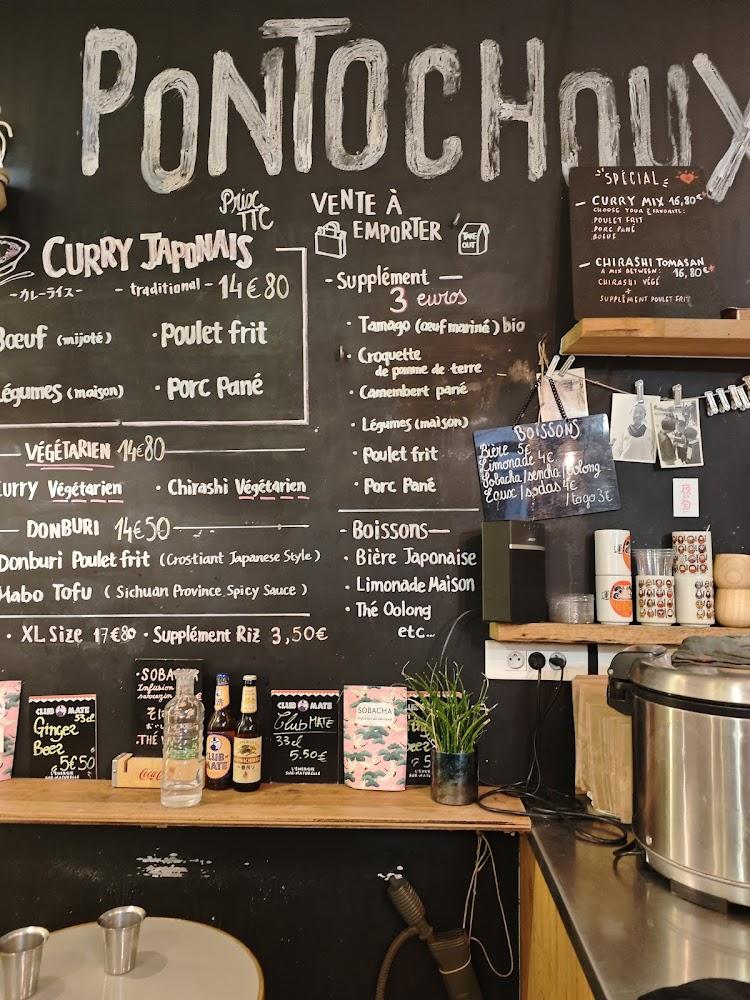 PONTOCHOUX
Prix
TTC
VENTE À
EMPORTER
TAKE
OUT
CURRY JAPONAIS
-カレーライス-
- traditional - 14€80
Bœuf (mijoté)
• Poulet frit
Légumes (maison)
• Porc Pané
VÉGÉTARIEN 14€80
Curry Végétarien
• Chirashi Végétarien
DONBURI 14€50
Donburi Poulet frit (Crostiant Japanese Style)
Mabo Tofu (Sichuan Province Spicy Sauce)
• XL Size 17€80 • Supplément Riz 3,50€
- Supplément —
3 euros
• Tamago (œuf mariné) bio
• Croquette
de pomme de terre
• Camembert pané
• Légumes (maison)
• Poulet frit
• Porc Pané
- Boissons —
• Bière Japonaise
• Limonade Maison
• Thé Oolong
etc...
SPÉCIAL
- CURRY MIX 16,80€
CHOOSE YOUR 2 FAVORITE:
POULET FRIT
PORC PANÉ
BOEUF
- CHIRASHI TOMASAN
A MIX BETWEEN: 16,80€
CHIRASHI VÉGÉ
+
SUPPLÉMENT POULET FRIT
BOISSONS
Bière 5€
Limonade 4€
Sobacha/sencha/oolong
Eaux/sodas 4€
/togo 3€
CLUB MATE
33cl
Ginger
Beer
5€50
L'ÉNERGIE
SUR-NATURELLE
SOBA
Infusion
sarrazin
THÉ
Coca
CLUB-
MATE
KIRIN
CLUB MATE
Club MATE
33cl
5.50€
L'ÉNERGIE
SUR-NATURELLE
SOBACHA